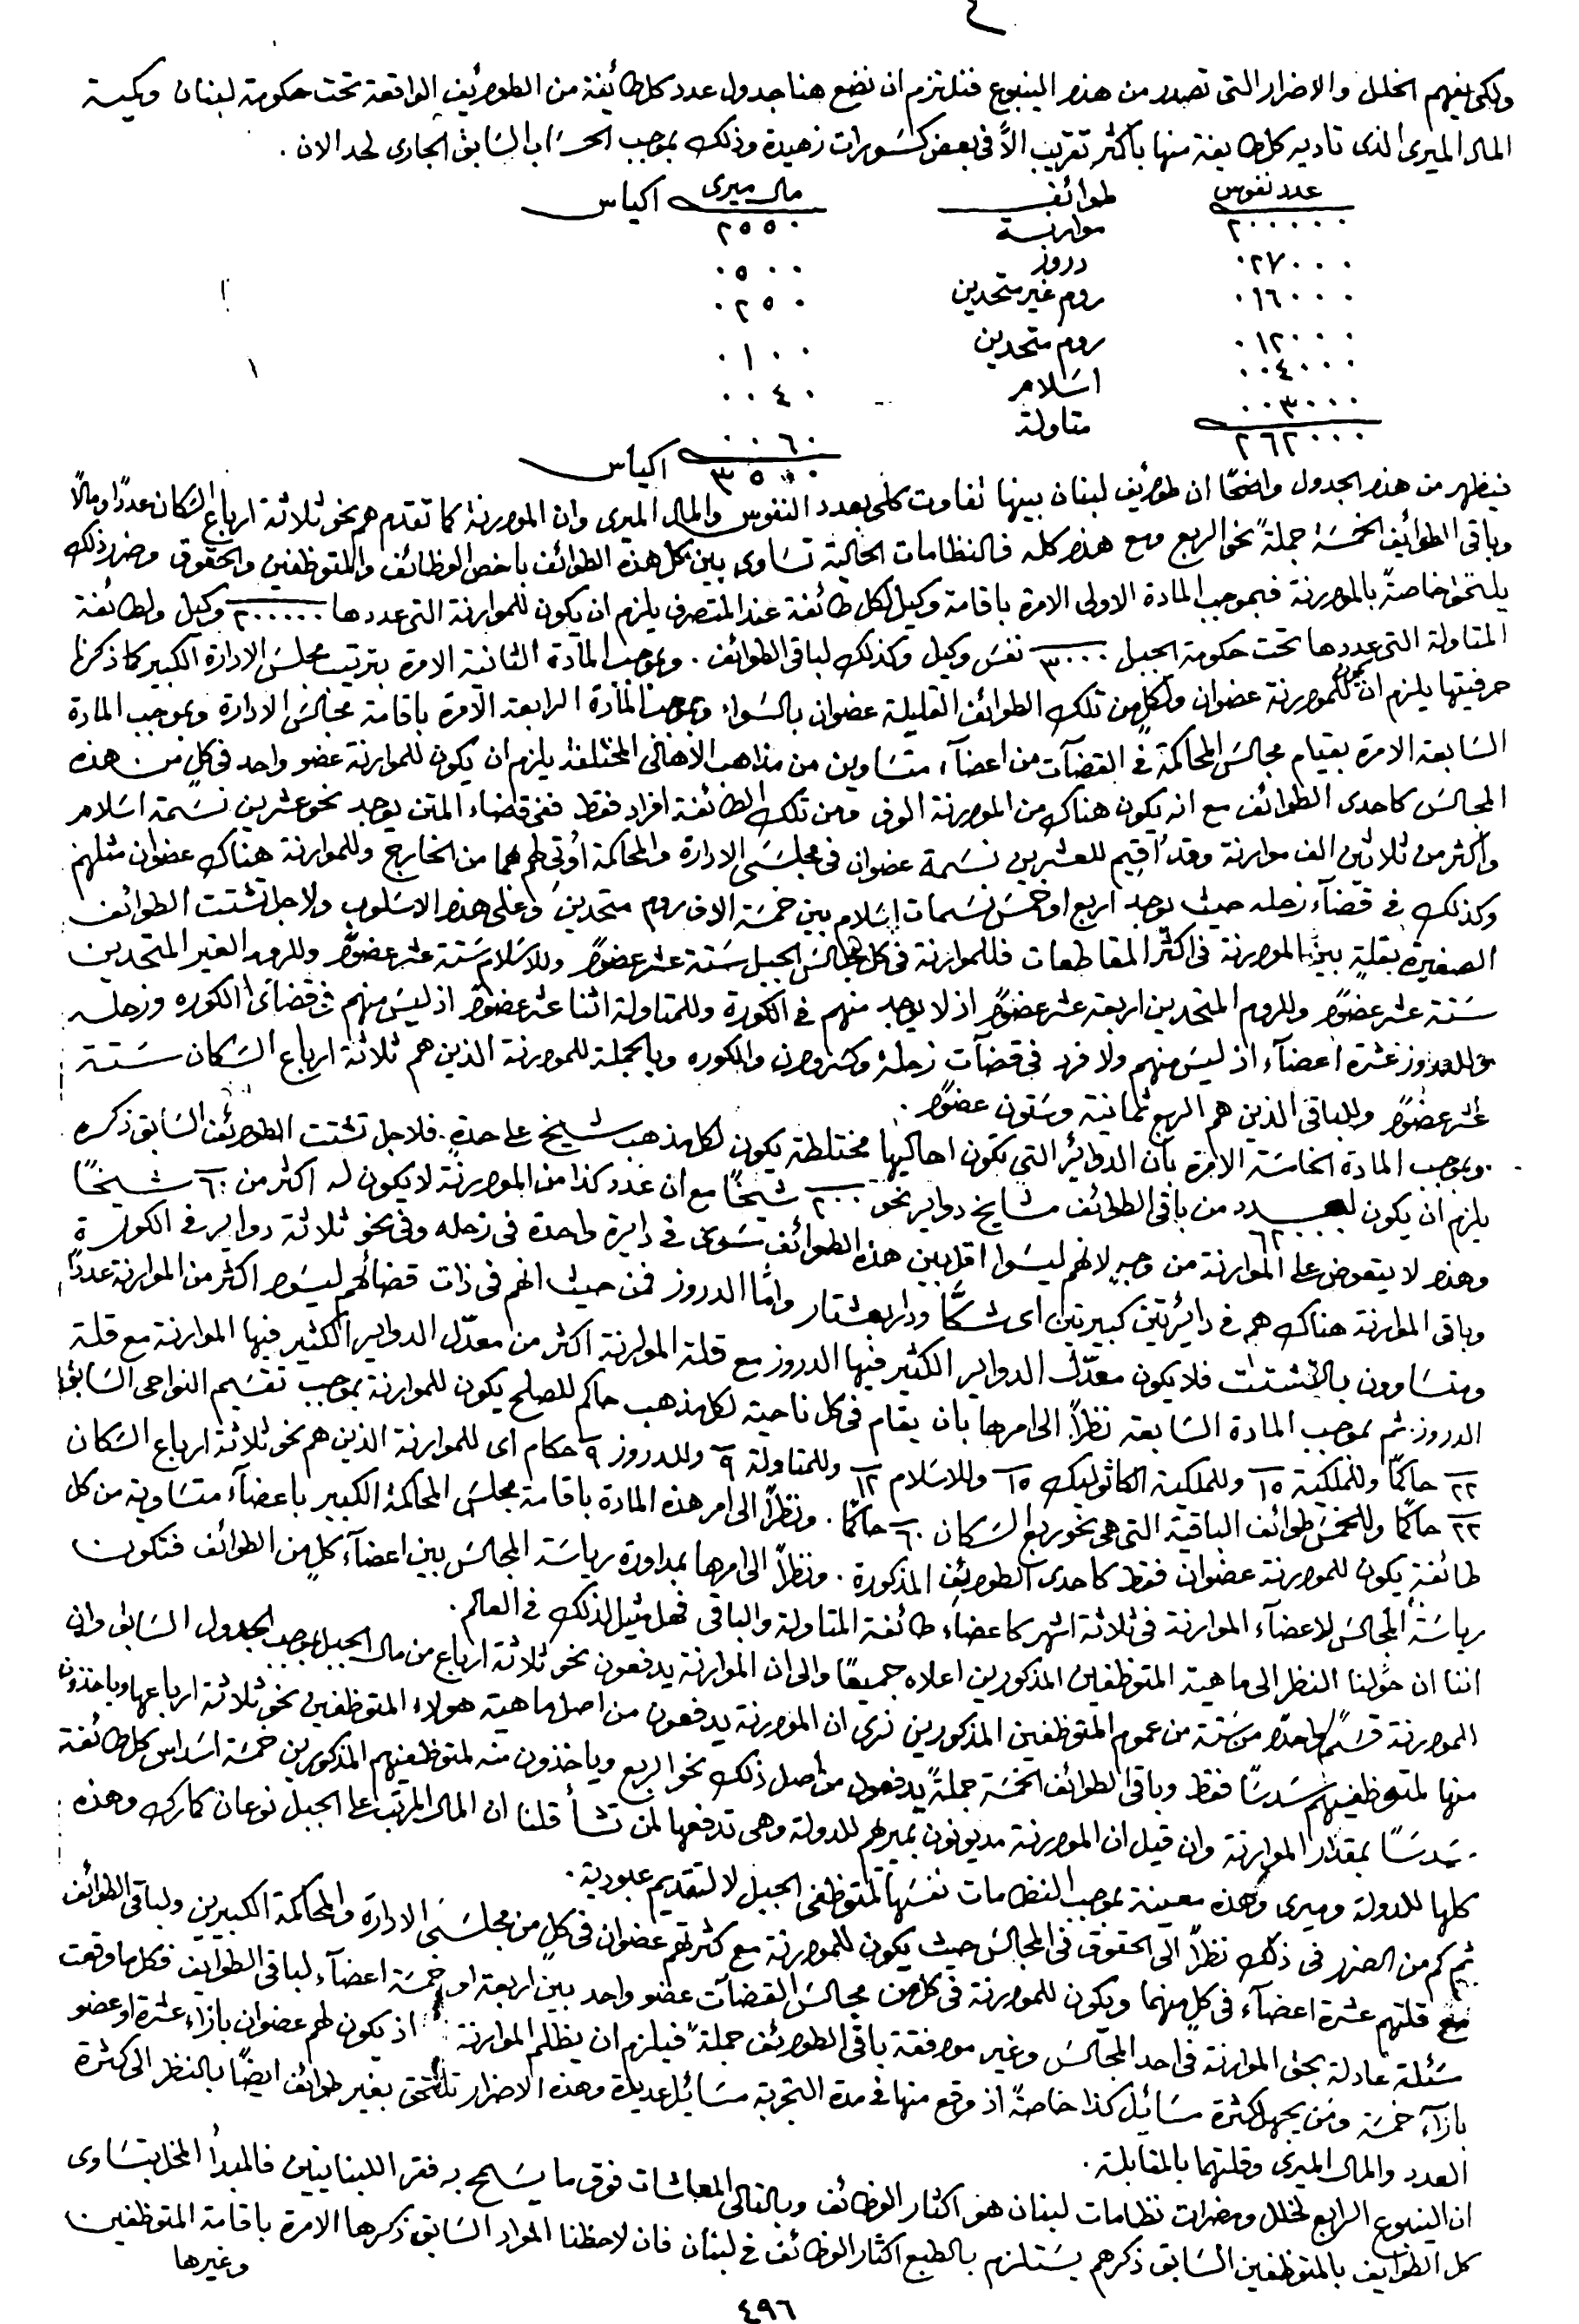 ٤
ولكى يفهم الخلل والاضرار التى تصدر من هذا الينبوع فنلتزم ان نضع هنا جدول عدد كل طائفة من الطوايف الواقعة تحت حكومة لبنان وكمية
المال الميرى الذى تاديه كل طايفة منها باكثر تقريب الاً فى بعض كسورات زهيدة وذلك بموجب الحساب السابق الجارى لحد الان .
عدد نفوس طوائف مال ميرى اكياس
٢٠٠٠٠٠ موارنة ٢٥٥٠
٠٢٧٠٠٠ دروز ٠٥٠٠
٠١٦٠٠٠ روم غير متحدين ٠٢٥٠
٠١٢٠٠٠ روم متحدين ٠١٠٠
٠٠٤٠٠٠ اسلام ٠٠٤٠
٠٠٣٠٠٠ متاولة ٠٠٦٠
٢٦٢٠٠٠ ٣٥٠٠ اكياس
فيظهر من هذا الجدول واضحًا ان طوايف لبنان بينها تفاوت كلى بعدد النفوس والمال الميرى وان الموارنة كما تقدم هم نحو ثلاثة ارباع السكان عددًا ومالًا
وباقى الطوائف الخمسة جملةً نحو الربع ومع هذا كله فالنظامات الحالية تساوى بين كل هذه الطوائف باخص الوظائف والمتوظفين والحقوق وضرر ذلك
يلتحق خاصةً بالموارنة فبموجب المادة الاولى الامرة باقامة وكيل لكل طائفة عند المتصرف يلزم ان يكون للموارنة التى عددها ٢٠٠٠٠٠ وكيل ولطائفة
المتاولة التى عددها تحت حكومة الجبل ٣٠٠٠ نفس وكيل وكذلك لباقى الطوائف . وبموجب المادة الثانية الامرة بترتيب مجلس الادارة الكبير كما ذكرنا
حرفيتها يلزم ان يكون للموارنة عضوان ولكلٍ من تلك الطوائف القليلة عضوان بالسواء وبموجب المادة الرابعة الامرة باقامة مجالس الادارة وبموجب المادة
السابعة الامرة بقيام مجالس المحاكمة فى القضآت من اعضآء متساوين من مذاهب الاهالى المختلفة يلزم ان يكون للموارنة عضو واحد فى كلٍ من هذه
المجالس كاحدى الطوائف مع انه يكون هناك من الموارنة الوف ومن تلك الطائفة افراد فقط ففى قضاء المتن يوجد نحو عشرين نسمة اسلام
واكثر من ثلاثين الف موارنة وقد اُقيم للعشرين نسمة عضوان فى مجلسَى الادارة والمحاكمة اُوتى لهم بهما من الخارج وللموارنة هناك عضوان مثلهم
وكذلك فى قضآء زحله حيث يوجد اربع او خمس نسمات اسلام بين خمسة الاف روم متحدين وعلى هذا الاسلوب ولاجل تشتت الطوائف
الصغيرة بقلةٍ بين الموارنة فى اكثر المقاطعات فللموارنة فى كل مجالس الجبل ستة عشر عضوًا وللاسلام ستة عشر عضوًا وللروم الغير المتحدين
ستة عشر عضوًا وللروم المتحدين اربعة عشر عضوًا اذ لا يوجد منهم فى الكورة وللمتاولة اثنا عشر عضوًا اذ ليس منهم فى قضائى الكوره وزحله
وللدروز عشرة اعضآء اذ ليس منهم ولا فرد فى قضآت زحلة وكسروان والكوره وبالجملة للموارنة الذين هم ثلاثة ارباع السكان ستة
عشر عضوًا وللباقى الذين هم الربع ثمانية وستون عضوًا .
وبموجب المادة الخامسة الامرة بان الدوائر التى تكون اهاليها مختلطة يكون لكل مذهب شيخ على حدةٍ . فلاجل تشتت الطوائف السابق ذكره
يلزم ان يكون لعدد من باقى الطوائف مشايخ دواير نحو ٢٠٠٠ شيخًا مع ان عدد كذا من الموارنة لا يكون له اكثر من ٦٠ شيخًا
وهذا لا يتعوض على الموارنة من وجهٍ لانهم ليسوا اقل بين هذه الطوائف سوى فى دايرة واحدة فى زحله وفى نحو ثلاثة دواير فى الكورة
وباقى الموارنة هناك هم فى دائرتين كبيرتين اى شكَّا وداربعشتار وامَّا الدروز فمن حيث انهم فى ذات قضائهم ليسوا اكثر من الموارنة عددًا
ومتساوون بالتشتت فلا يكون معدّل الدواير الكثير فيها الدروز مع قلة الموارنة اكثر من معدّل الدواير الكثير فيها الموارنة مع قلة
الدروز . ثم بموجب المادة السابعة نظرًا الى امرها بان يقام فى كل ناحية لكل مذهب حاكم للصلح يكون للموارنة بموجب تقسيم النواحى السابق
٢٢ حاكمًا وللملكية ١٥ وللملكية الكاثوليك ١٥ وللاسلام ١٢ وللمتاولة ٩ وللدروز ٩ حكام اى للموارنة الذين هم نحو ثلاثة ارباع السكان
٢٢ حاكمًا وللخمس طوائف الباقية التى هى نحو ربع السكان ٦٠ حاكمًا . ونظرًا الى امر هذه المادة باقامة مجلس المحاكمة الكبير باعضآء متساوية من كل
طائفةٍ يكون للموارنة عضوان فقط كاحدى الطوايف المذكورة . ونظرًا الى امرها بمداورة رياسة المجالس بين اعضآء كلٍ من الطوائف فتكون
رياسة المجالس لاعضآء الموارنة فى ثلاثة اشهر كاعضاء طائفة المتاولة والباقى فهل مثيل لذلك فى العالم .
اننا ان حَّولنا النظر الى ماهية المتوظفين المذكورين اعلاه جميعًا والى ان الموارنة يدفعون نحو ثلاثة ارباع من مال الجبل بموجب الجدول السابق وان
الموارنة قسمًا واحدًا من ستة من عموم المتوظفين المذكورين نرى ان الموارنة يدفعون من اصل ماهية هولاء المتوظفين نحو ثلاثة ارباعها وياخذون
منها لمتوظفيهم سدسًا فقط وباقى الطوائف الخمسة جملةً يدفعون من اصل ذلك نحو الربع وياخذون منه لمتوظفيهم المذكورين خمسة اسداس كل طائفة
سدسًا بمقدار الموارنة وان قيل ان الموارنة مديونون بميرهم للدولة وهى تدفعها لمن تشأ قلنا ان المال المرتب على الجبل نوعان كمارك وهذه
كلها للدولة وميرى وهذه معينة بموجب النظامات نفسها لمتوظفى الجبل لا لتقديم عبودية .
ثم كم من الضرر فى ذلك نظرًا الى الحقوق فى المجالس حيث يكون للموارنة مع كثرتهم عضوان فى كلٍ من مجلسَى الادارة والمحاكمة الكبيرين ولباقى الطوائف
مع قلتهم عشرة اعضآء فى كلٍ منهما ويكون للموارنة فى كل من مجالس القضآت عضو واحد بين اربعة او خمسة اعضآء لباقى الطوايف فكل ما وقعت
مسئلة عادلة بحق الموارنة فى احد المجالس وغير موافقة باقى الطوائف جملةً فيلزم ان يظلم الموارنة اذ يكون لهم عضوان بازاء عشرة او عضو
بازآء خمسة ومَن يجهل كثرة مسائل كذا خاصةً اذ وقع منها فى مدة التجربة مسائل عديدة وهذه الاضرار تلتحق بغير طوائف ايضًا بالنظر الى كثرة
العدد والمال الميرى وقلتهما بالمقابلة .
ان الينبوع الرابع لخلل ومضرات نظامات لبنان هو اكثار الوظائف وبالتالى المعاشات فوق ما يسمح به فقر اللبنانيين فالمبدأ المخل بتساوى
كل الطوايف بالمتوظفين السابق ذكرهم يستلزم بالطبع اكثار الوظائف فى لبنان فان لاحظنا المواد السابق ذكرها الامرة باقامة المتوظفين
وغيرها
٤٩٦